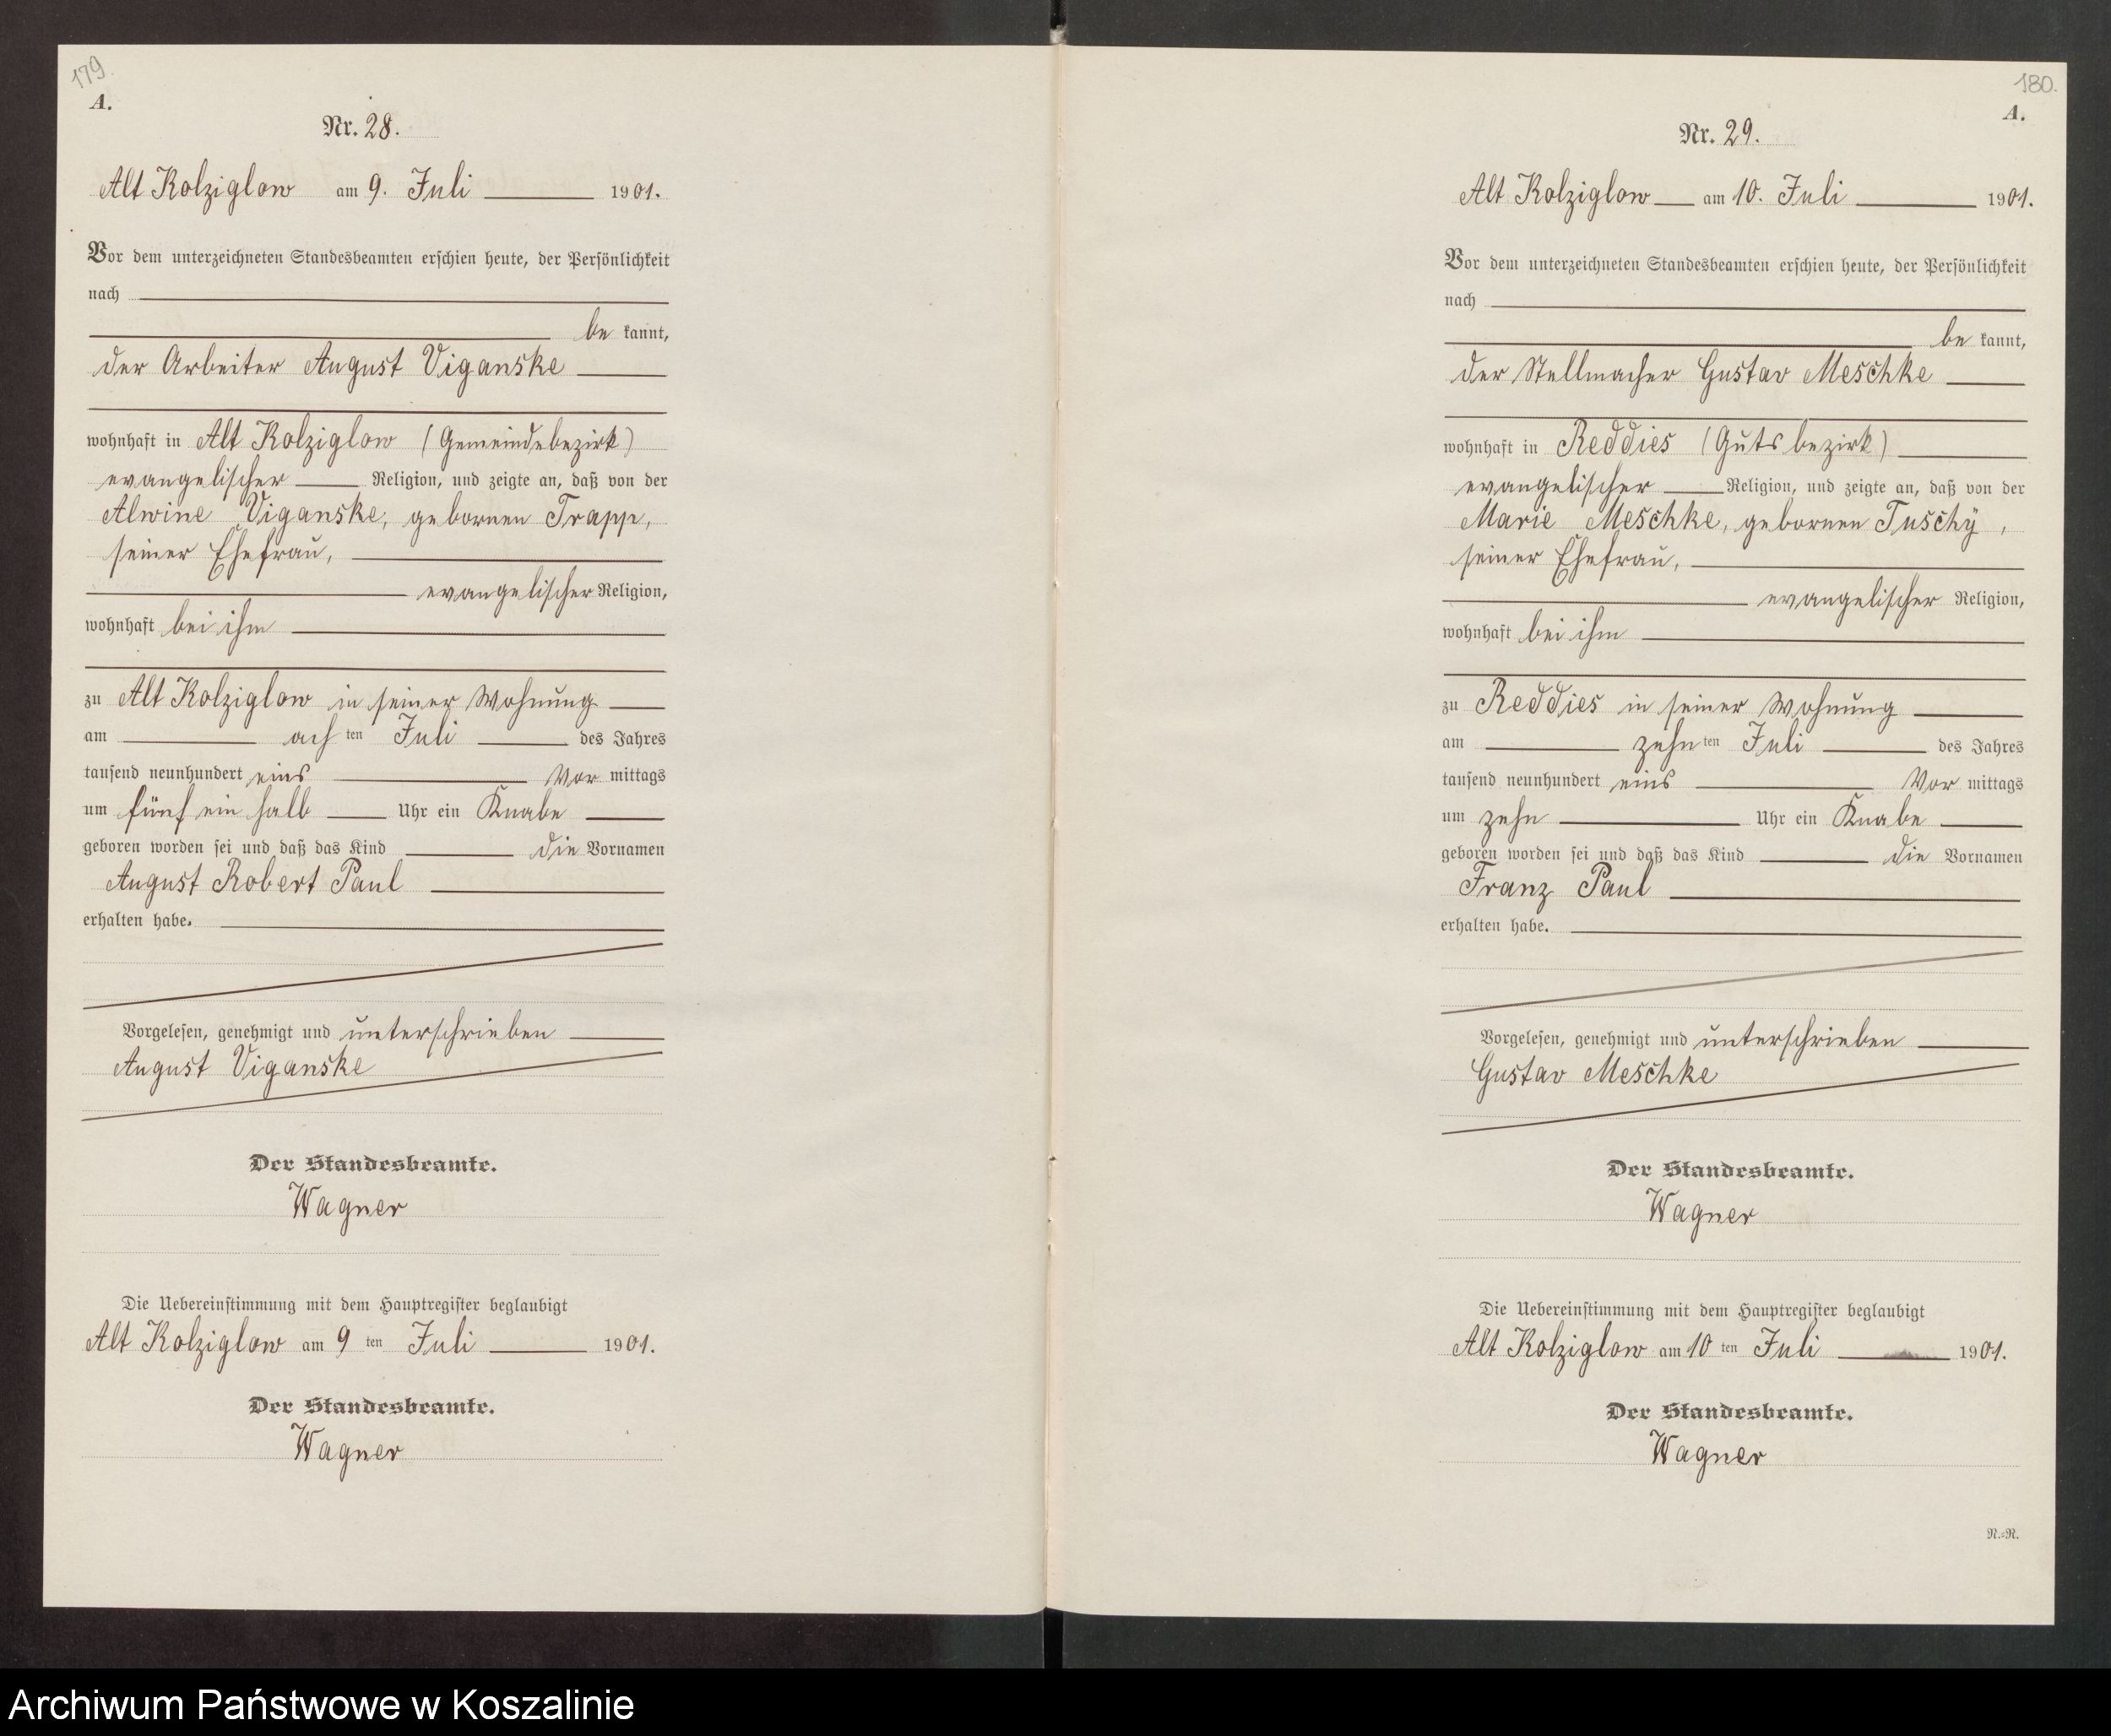 179.
A.
Nr. 28.
Alt Kolziglow am 9. Juli 1901.
Vor dem unterzeichneten Standesbeamten erschien heute, der Persönlichkeit
nach
be kannt,
der Arbeiter August Viganske
wohnhaft in Alt Kolziglow (Gemeindebezirk)
evangelischer Religion, und zeigte an, daß von der
Alwine Viganske, gebornen Trapp,
seiner Ehefrau,
evangelischer Religion,
wohnhaft bei ihm
zu Alt Kolziglow in seiner Wohnung
am ach ten Juli des Jahres
tausend neunhundert eins Vor mittags
um fünf ein halb Uhr ein Knabe
geboren worden sei und daß das Kind die Vornamen
August Robert Paul
erhalten habe.
Vorgelesen, genehmigt und unterschrieben
August Viganske
Der Standesbeamte.
Wagner
Die Uebereinstimmung mit dem Hauptregister beglaubigt
Alt Kolziglow am 9 ten Juli 1901.
Der Standesbeamte.
Wagner
180.
A.
Nr. 29.
Alt Kolziglow am 10. Juli 1901.
Vor dem unterzeichneten Standesbeamten erschien heute, der Persönlichkeit
nach
be kannt,
der Stellmacher Gustav Meschke
wohnhaft in Reddies (Gutsbezirk)
evangelischer Religion, und zeigte an, daß von der
Marie Meschke, gebornen Tuschy,
seiner Ehefrau,
evangelischer Religion,
wohnhaft bei ihm
zu Reddies in seiner Wohnung
am zehn ten Juli des Jahres
tausend neunhundert eins Vor mittags
um zehn Uhr ein Knabe
geboren worden sei und daß das Kind die Vornamen
Franz Paul
erhalten habe.
Vorgelesen, genehmigt und unterschrieben
Gustav Meschke
Der Standesbeamte.
Wagner
Die Uebereinstimmung mit dem Hauptregister beglaubigt
Alt Kolziglow am 10 ten Juli 1901.
Der Standesbeamte.
Wagner
N.=R.
Archiwum Państwowe w Koszalinie